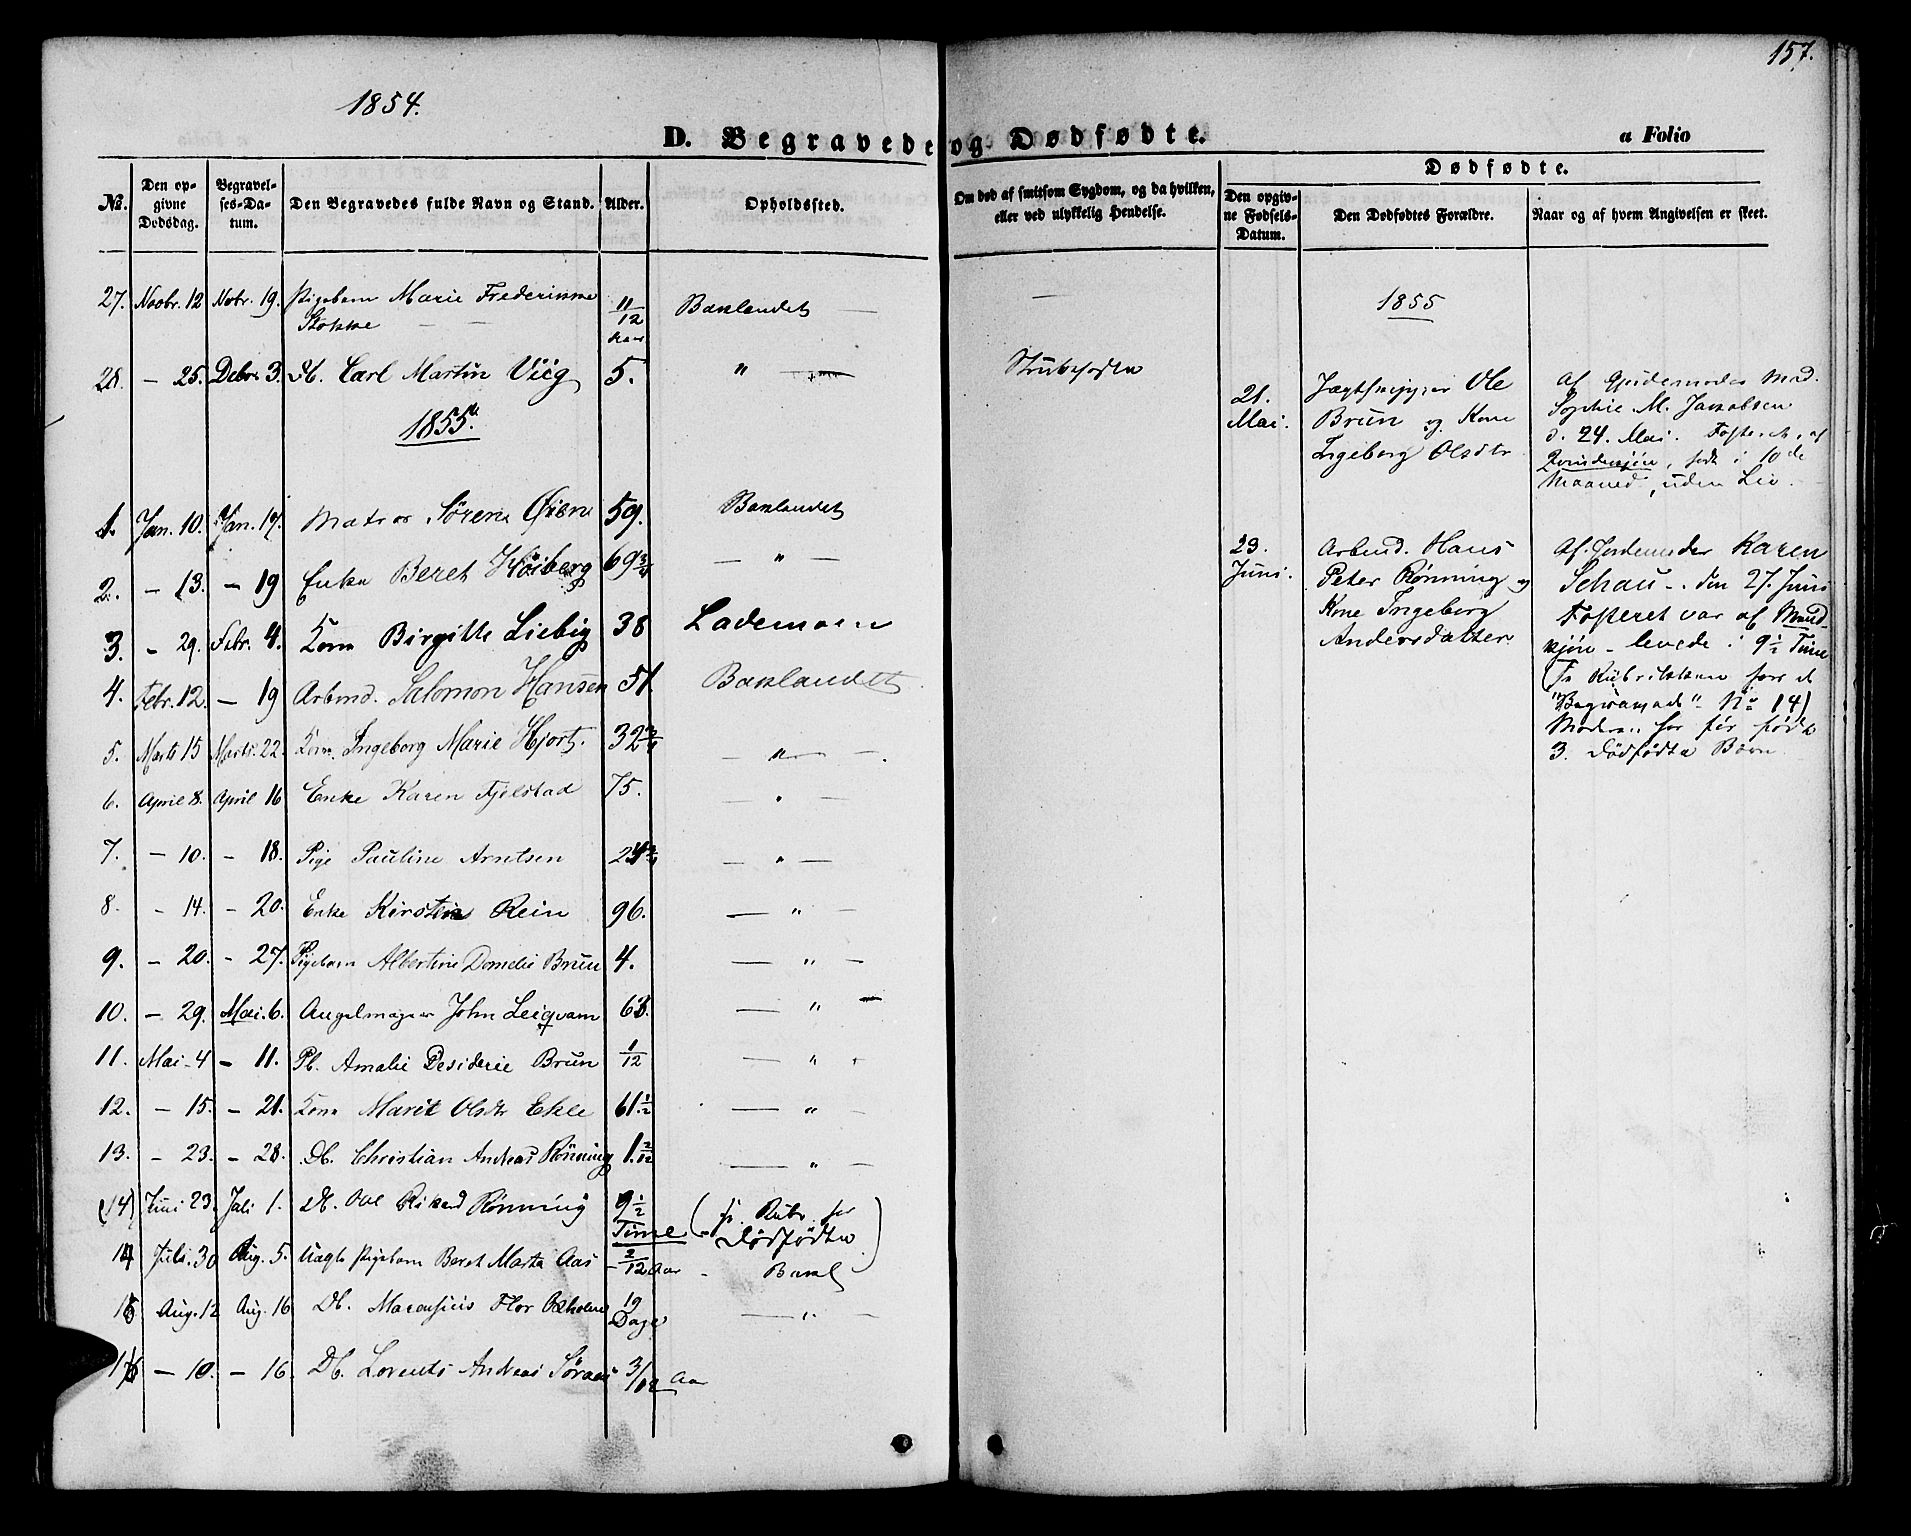 157.
1854.
D. Begravede og Dødfødte.
a Folio
No. Den opgivne Dødsdag. Begravelses-Datum. Den Begravedes fulde Navn og Stand. Alder. Opholdssted. Om død af smitsom Sygdom, og da hvilken, eller ved ulykkelig Hendelse.
Dødfødte.
Den opgivne Fødsels-Datum. Den Dødfødtes Forældre. Naar og af hvem Angivelsen er skeet.
27. Novbr. 12 Novbr. 19. Pigebarn Marie Frederikke
Stokke — — 11/12 Aar Baklandet — —
28. — 25. Debr. 3. Db. Carl Martin Viig 5. " — Strubehoste
1855.
1. Jan. 10. Jan. 17. Matros Sörens Öien 59. Baklandet
2. — 13. — 19 Enke Beret Höiberg 69 3/4 — " —
3. — 29. Febr. 4. Kone Birgitte Liebig 38 Lademoen
4. Febr. 12. — 19 Arbmd. Salomon Hansen 51. Baklandet
5. Marts 15 Marts. 22. Kone Ingeborg Marie Hjort. 32 — " — .
6. April 8. April 16 Enke Karen Fjelstad 75. — " —
7. — 10. — 18. Pige Pauline Arntsen 24 — " —
8. — 14. — 20. Enke Kirstine Rein 96. — " —
9. — 20. — 27. Pigebarn Albertine Brun 4. — " —
10. — 29. Mai. 6. Angelmager John Leiqvam 63. — " —
11. Mai. 4 — 11. Pb. Amalie Desiderie Brun 1/12 — " —
12. — 15. — 21. Kone Marit Olsdtr Ekle 61. 1/2 — " —
13. — 23. — 28. Db. Christian Andreas Rönning 1. 2/12 — " —
(14) Juni 23. Juli 1. Db. Ole Rikard Rönning 9 1/2
Time (fr. Rubr. for
Dödfödte)
14 Juli. 30 Aug. 5. Uægte Pigebarn Beret Marta Aas 2/12 Aar - Bakl
15 Aug. 12 Aug. 16 Db. Flor 19
Dage — " —
16 — 10. — 16. Db. Lorents Andreas 3/12 Aar
1855
21.
Mai.
Jægtskipper Ole
Brun og Kone
Ingeborg Olsdtr
Af Gjordemoder Mad.
Sophie M. Jakobsen
d. 24. Mai. Fosteret, af
Qvindekjön, födt i 10de
Maaned, uden Liv.
23.
Juni.
Arbmd. Hans
Peter Rönning og
Kone Ingeborg
Andersdatter.
Af Jordemoder Karen
Schau - den 27. Juni
Fosteret var af Mand-
kjön - levede i 9 1/2 Time
(Fr. Rubrikken for de
"Begravede" No 14)
Moderen har för födt
3. Dödfödte Börn.